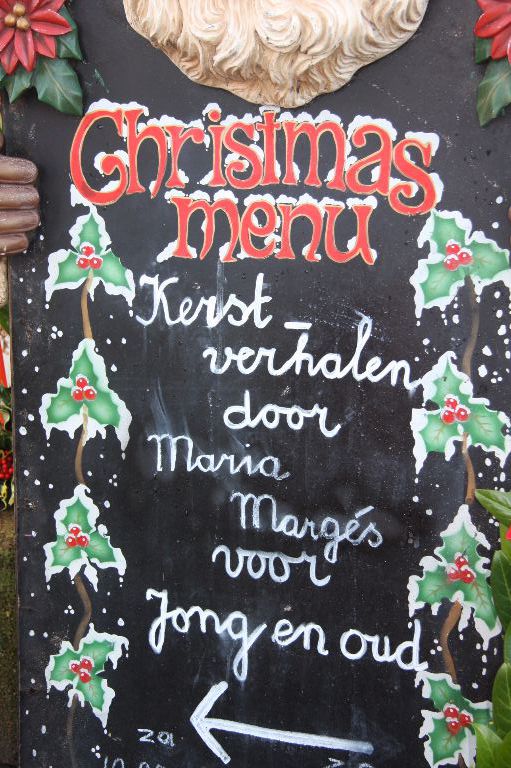 Christmas
menu
Kerst-
verhalen
door
Maria
Margés
voor
Jong en oud
za